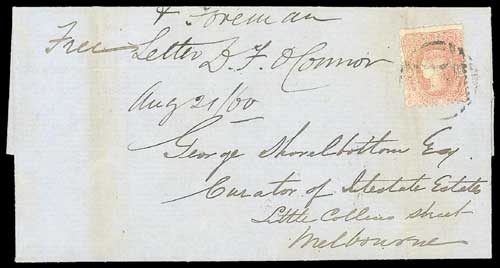 & Foreman
Free Letter D. F. O'Connor
Aug 21/60
George Shovelbottom Esq.
Curator of Itestate Estates
Little Collins street
Melbourne